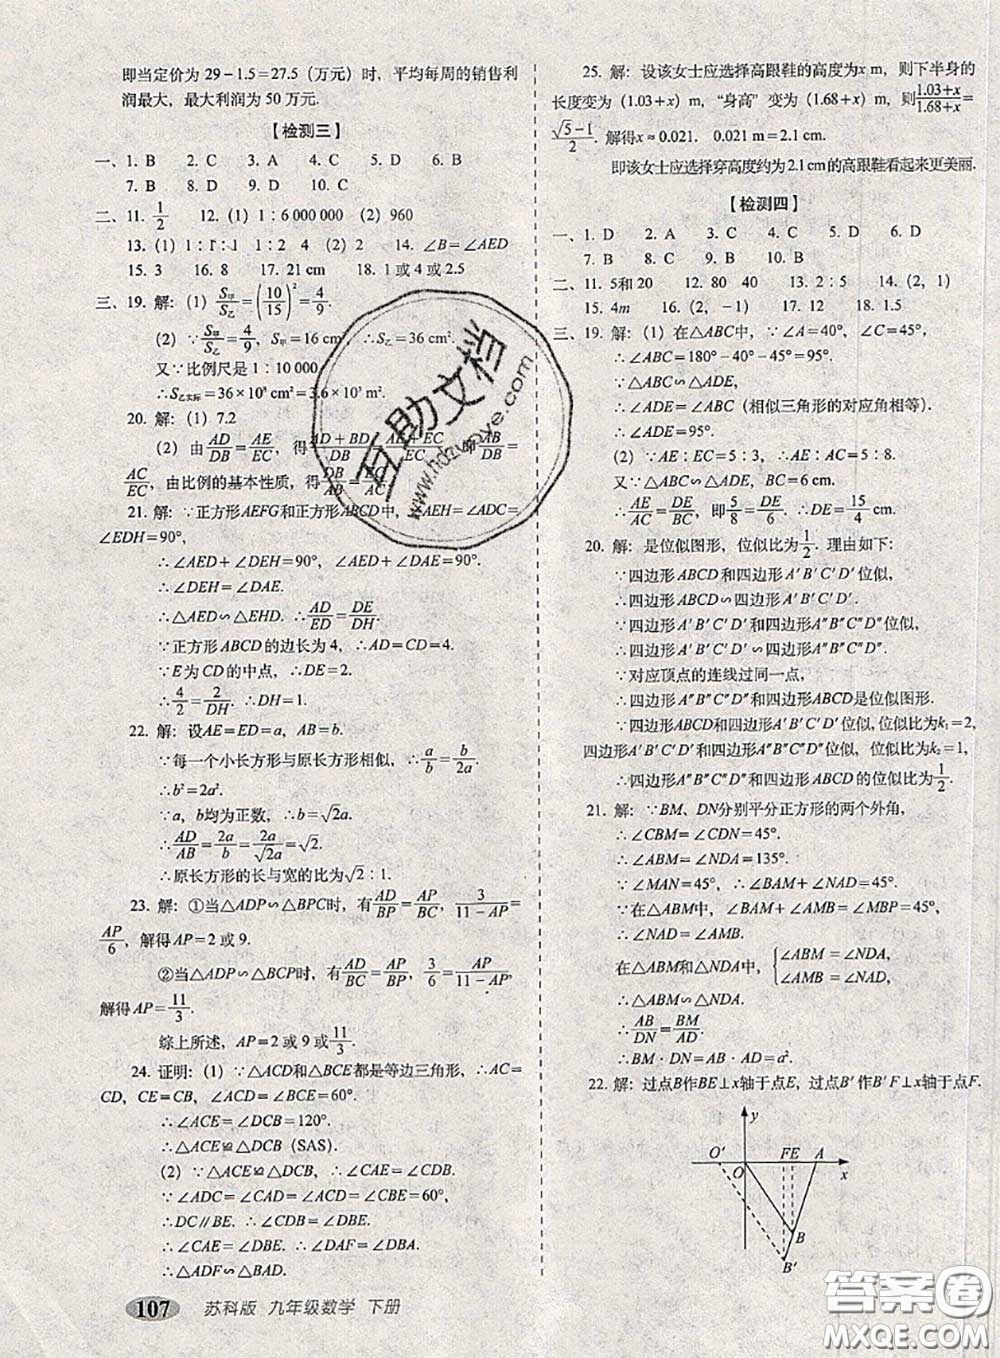 即当定价为29-1.5=27.5(万元)时,平均每周的销售利
润最大,最大利润为50万元.
【检测三】
一、1. B 2. C 3. A 4. C 5. C 6. B
7. B 8. D 9. C 10. C
二、11. 1/2 12. (1) 1∶6 000 000 (2) 960
13. (1) 1∶1∶1 1∶2 4 (2) 2 14. ∠B=∠AED
15. 3 16. 8 17. 21 cm 18. 1或4或2.5
三、19. 解:(1) S甲/S乙=(10/15)²=4/9.
(2) ∵S甲/S乙=4/9, S甲=16 cm ∴S乙=36 cm².
又∵比例尺是1∶10 000,
∴S乙实际=36×10⁸ cm²=3.6×10⁵ m².
20. 解:(1) 7.2
(2) 由AD/DB=AE/EC, 得(AD+BD)/DB=(AE+EC)/EC, 即AB/DB=
AC/EC, 由比例的基本性质, 得DB/AB=EC/AC.
21. 解:∵正方形AEFG和正方形ABCD中, ∠AEH=∠ADC=
∠EDH=90°,
∴∠AED+∠DEH=90°, ∠AED+∠DAE=90°.
∴∠DEH=∠DAE.
∴△AED∽△EHD. ∴AD/ED=DE/DH.
∵正方形ABCD的边长为4, ∴AD=CD=4.
∵E为CD的中点, ∴DE=2.
∴4/2=2/DH. ∴DH=1.
22. 解:设AE=ED=a, AB=b.
∵每一个小长方形与原长方形相似, ∴a/b=b/2a.
∴b²=2a².
∵a, b均为正数, ∴b=√2a.
∴AD/AB=2a/b=2a/√2a=√2.
∴原长方形的长与宽的比为√2∶1.
23. 解:①当△ADP∽△BPC时, 有AD/BP=AP/BC, 3/(11-AP)=
AP/6, 解得AP=2或9.
②当△ADP∽△BCP时, 有AD/BC=AP/BP, 3/6=AP/(11-AP),
解得AP=11/3.
综上所述, AP=2或9或11/3.
24. 证明:(1) ∵△ACD和△BCE都是等边三角形, ∴AC=
CD, CE=CB, ∠ACD=∠BCE=60°.
∴∠ACE=∠DCB=120°.
∴△ACE≌△DCB (SAS).
(2) ∵△ACE≌△DCB, ∴∠CAE=∠CDB.
∵∠ADC=∠CAD=∠ACD=∠CBE=60°,
∴DC∥BE. ∴∠CDB=∠DBE.
∴∠CAE=∠DBE. ∴∠DAF=∠DBA.
∴△ADF∽△BAD.
25. 解:设该女士应选择高跟鞋的高度为x m, 则下半身的
长度变为(1.03+x) m, “身高”变为(1.68+x) m, 则(1.03+x)/(1.68+x)=
(√5-1)/2. 解得x≈0.021. 0.021 m=2.1 cm.
即该女士应选择穿高度约为2.1 cm的高跟鞋看起来更美丽.
【检测四】
一、1. D 2. A 3. C 4. C 5. D 6. D
7. B 8. B 9. C 10. B
二、11. 5和20 12. 80 40 13. 2∶5 14. (2, 1)
15. 4m 16. (2, -1) 17. 12 18. 1.5
三、19. 解:(1) 在△ABC中, ∵∠A=40°, ∠C=45°,
∴∠ABC=180°-40°-45°=95°.
∵△ABC∽△ADE,
∴∠ADE=∠ABC (相似三角形的对应角相等).
∴∠ADE=95°.
(2) ∵AE∶EC=5∶3, ∴AE∶AC=5∶8.
又∵△ABC∽△ADE, BC=6 cm,
∴AE/AC=DE/BC, 即5/8=DE/6. ∴DE=15/4 cm.
20. 解:是位似图形, 位似比为1/2. 理由如下:
∵四边形ABCD和四边形A′B′C′D′位似,
∴四边形ABCD∽四边形A′B′C′D′.
∵四边形A′B′C′D′和四边形A″B″C″D″位似,
∴四边形A′B′C′D′∽四边形A″B″C″D″.
∵对应顶点的连线过同一点,
∴四边形A″B″C″D″和四边形ABCD是位似图形.
∵四边形ABCD和四边形A′B′C′D′位似, 位似比为k₁=2,
四边形A′B′C′D′和四边形A″B″C″D″位似, 位似比为k₂=1,
∴四边形A″B″C″D″和四边形ABCD的位似比为1/2.
21. 解:∵BM、DN分别平分正方形的两个外角,
∴∠CBM=∠CDN=45°.
∴∠ABM=∠NDA=135°.
∵∠MAN=45°, ∴∠MAB+∠NAD=45°.
∵在△ABM中, ∠BAM+∠AMB=∠MBP=45°,
∴∠NAD=∠AMB.
在△ABM和△NDA中, {∠ABM=∠NDA,
∠AMB=∠NAD,
∴△ABM∽△NDA.
∴AB/DN=BM/AD.
∴BM·DN=AB·AD=a².
22. 解:过点B作BE⊥x轴于点E, 过点B′作B′F⊥x轴于点F.
y
O′ O F E A x
B
B′
107 苏科版 九年级数学 下册
互助文档
www.hdzuoye.com
答案圈
MXQE.COM